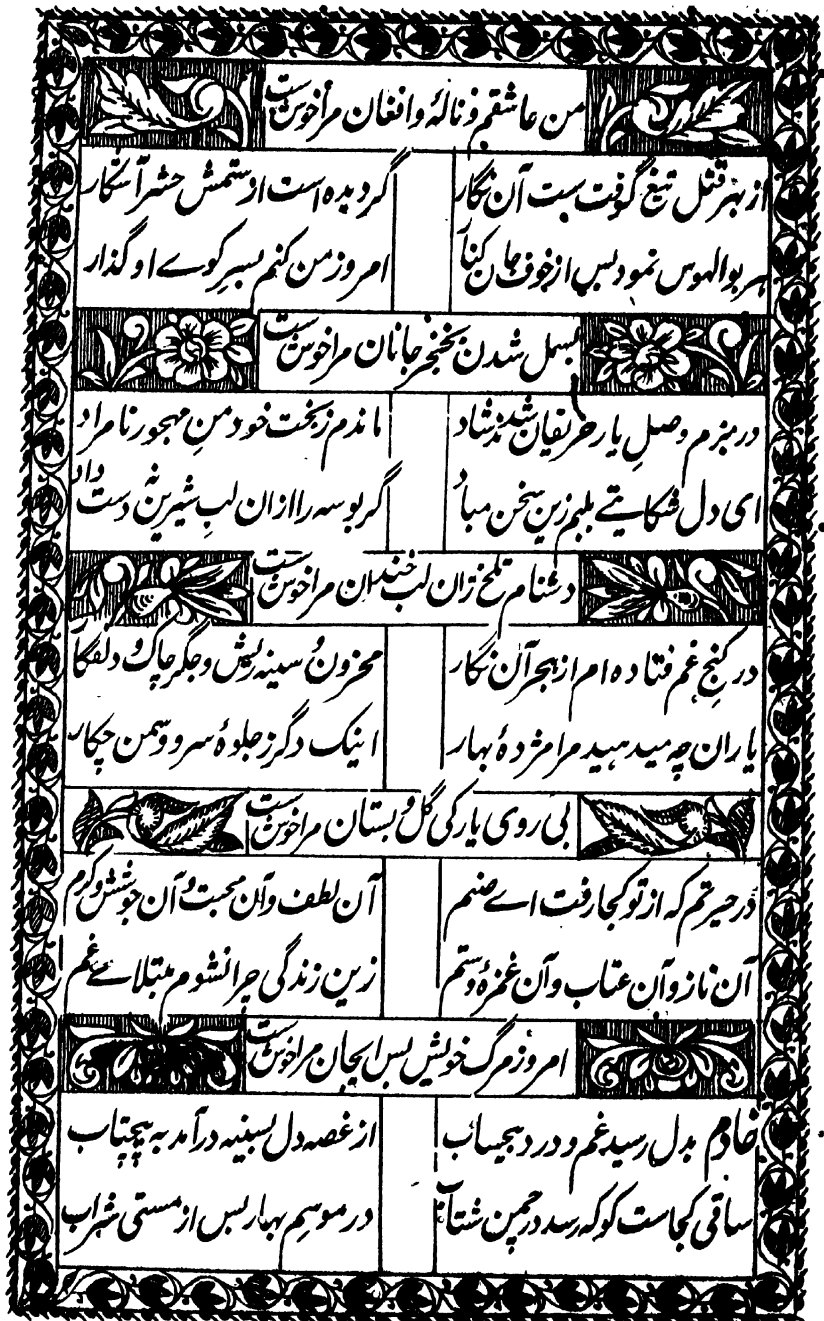 من عاشقم و نالهٔ و افغان مرا خوش ست
از بهر قتل تیغ گرفت ست آن نگار گردیده است از ستمش حشر آشکار
هر بوالهوس نمود بس از خوف جان کنار امروز من کنم بسر کوے او گذار
بسمل شدن بخنجر جانان مرا خوش ست
در بزم وصلِ یار حریفان شدند شاد ماندم ز بخت خود منِ مهجور نامراد
ای دل شکایتے بلبم زین سخن مباد گر بوسه را ازان لبِ شیرین نه دست داد
دشنام تلخ زان لب خندان مرا خوش ست
در کنجِ غم فتاده ام از هجر آن نگار محزون و سینه ریش و جگر چاک و دلفگار
یاران چه میدهید مرا مژدهٔ بهار اینک دگر ز جلوهٔ سرو و سمن چکار
بی روی یار کی گل و بستان مرا خوش ست
در حیرتم که از تو کجا رفت اے صنم آن لطف و آن محبت و آن جوشش و کرم
آن ناز و آن عتاب و آن غمزهٔ و ستم زین زندگی چرا نشوم مبتلاے غم
امروز مرگ خویش بس ایجان مرا خوش ست
خادم بدل رسید غم و درد بیحساب از غصه دل بسینه درآمد به پیچتاب
ساقی کجاست کو که رسد در چمن شتاب در موسمِ بهار بس از مستی شراب